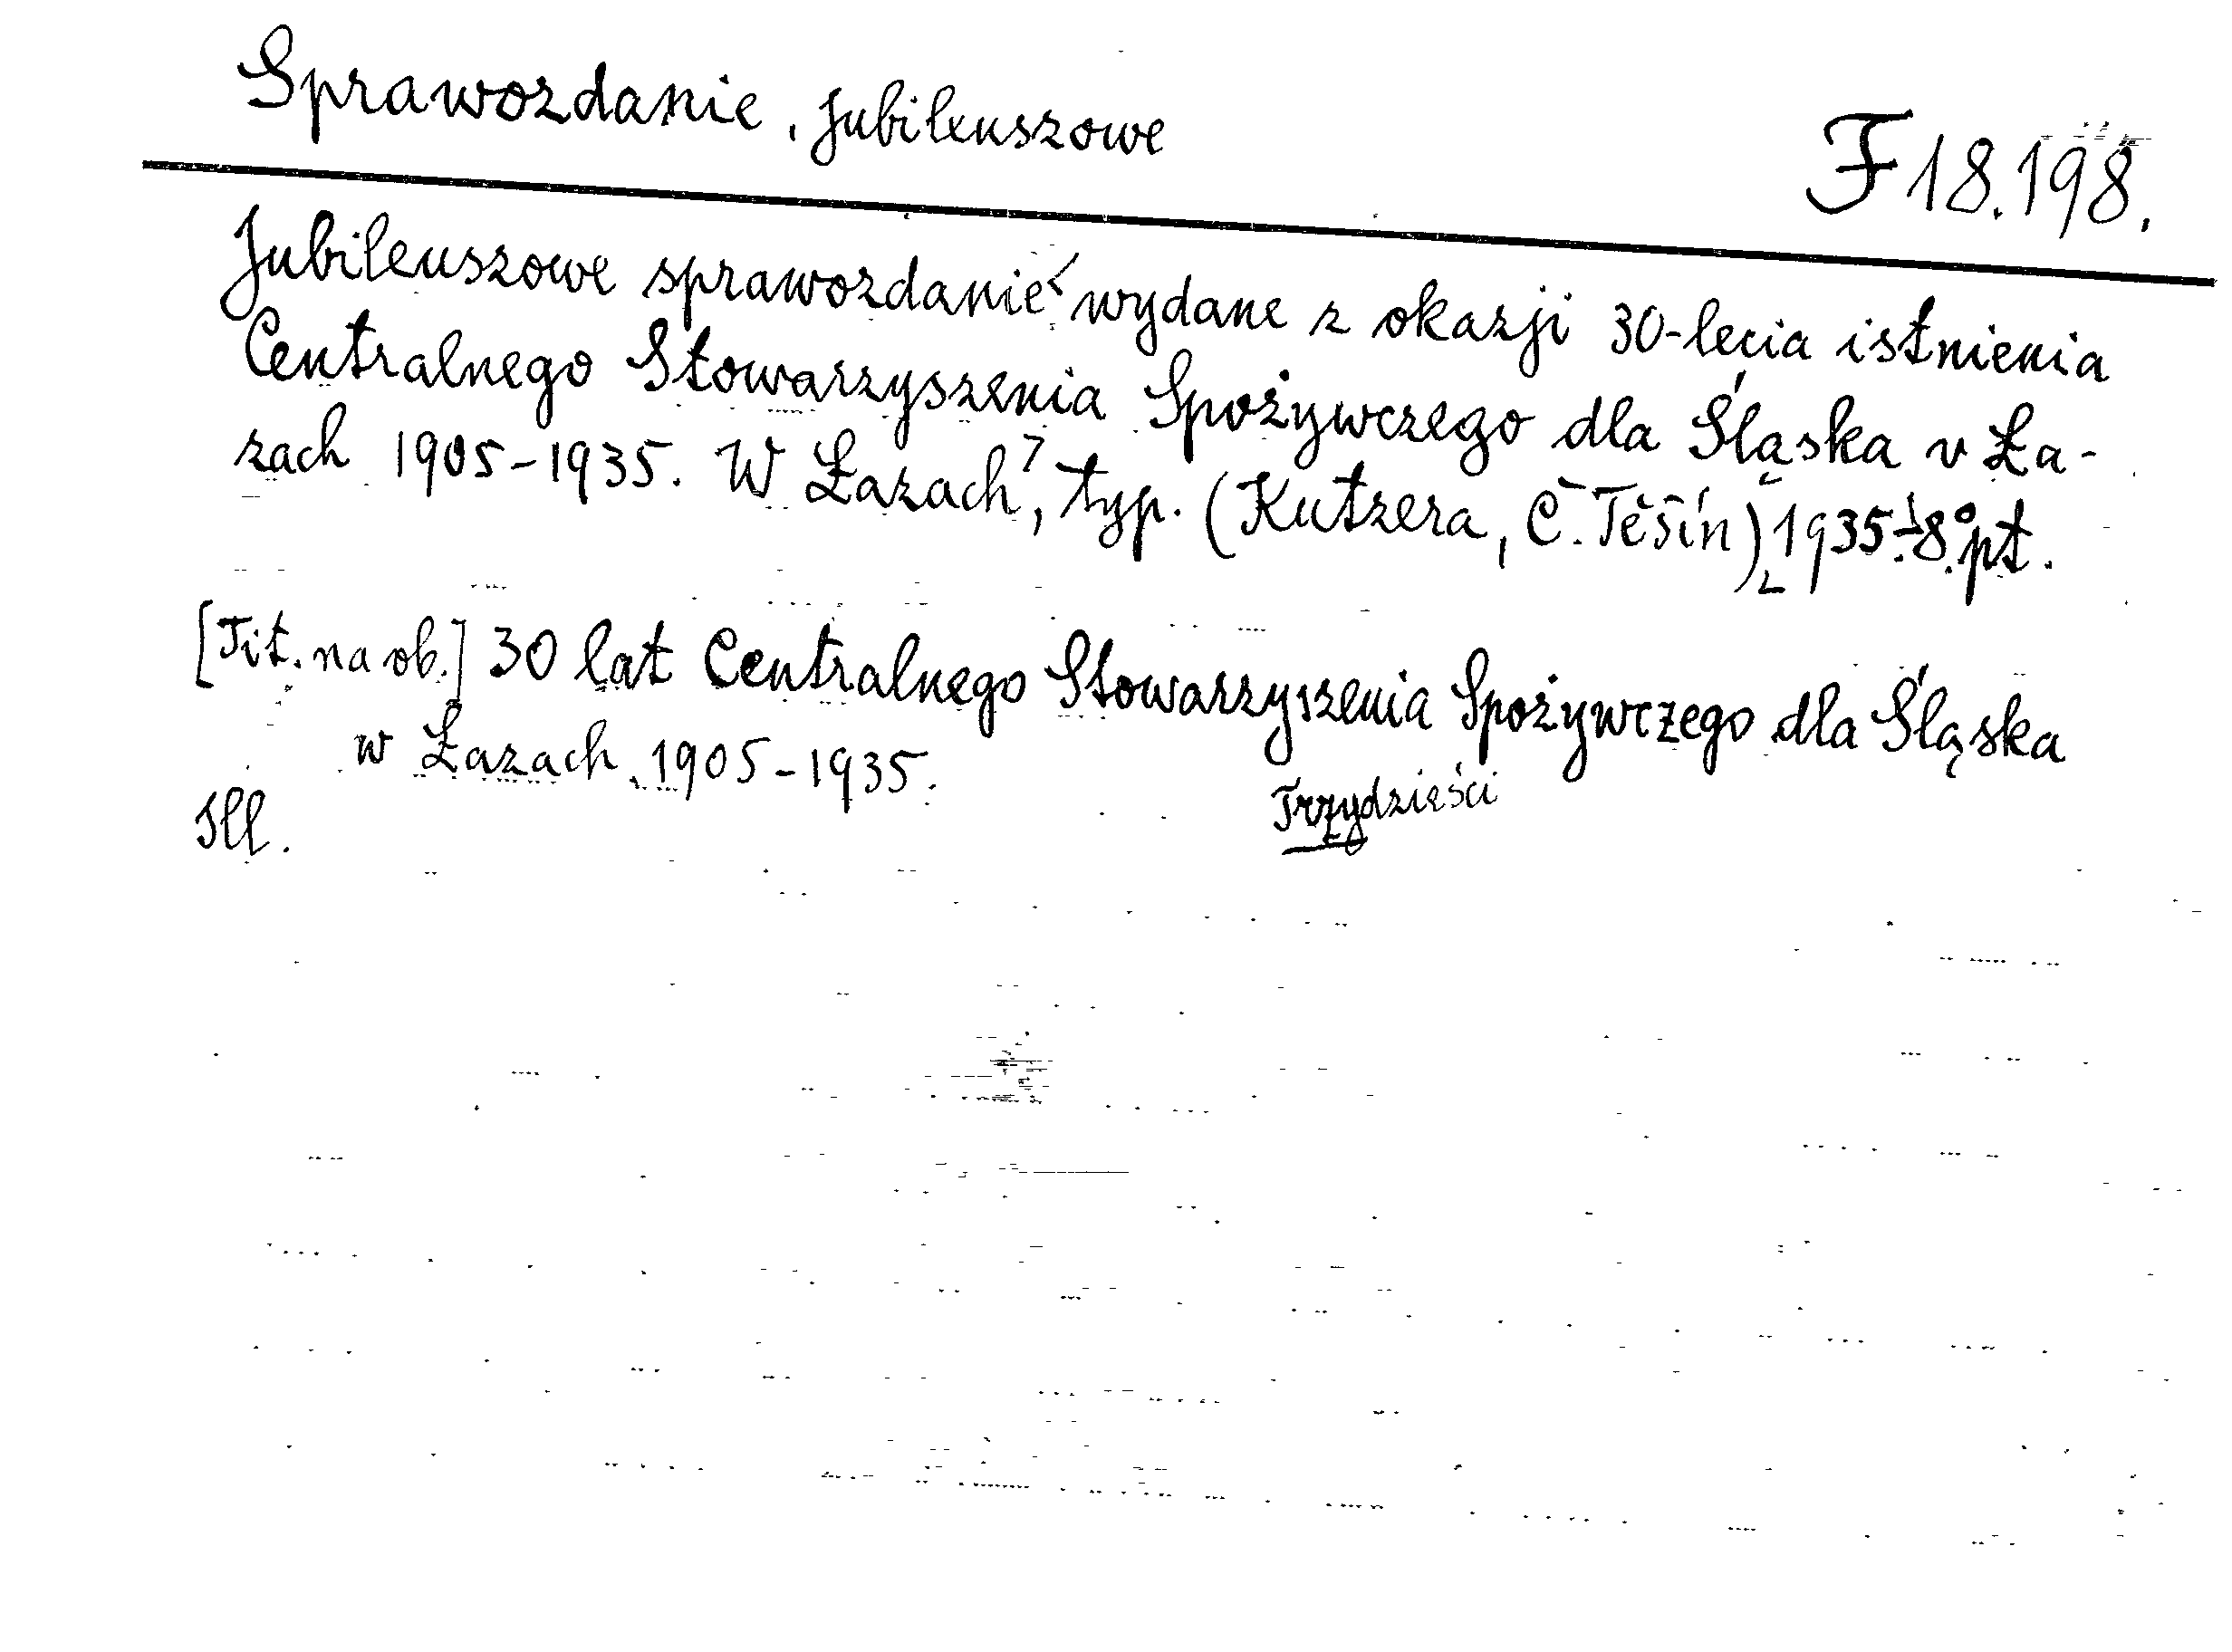 Sprawozdanie, jubileuszowe
F 18.198.
Jubileuszowe sprawozdanie wydane z okazji 30-lecia istnienia
Centralnego Stowarzyszenia Spożywczego dla Śląska v Ła-
zach 1905-1935. W Łazach, typ. (Kutzera, Č. Těšín) 1935. 8° pt.
[Tit. na ob.] 30 lat Centralnego Stowarzyszenia Spożywczego dla Śląska
w Łazach 1905-1935.
Trzydzieści
Ill.